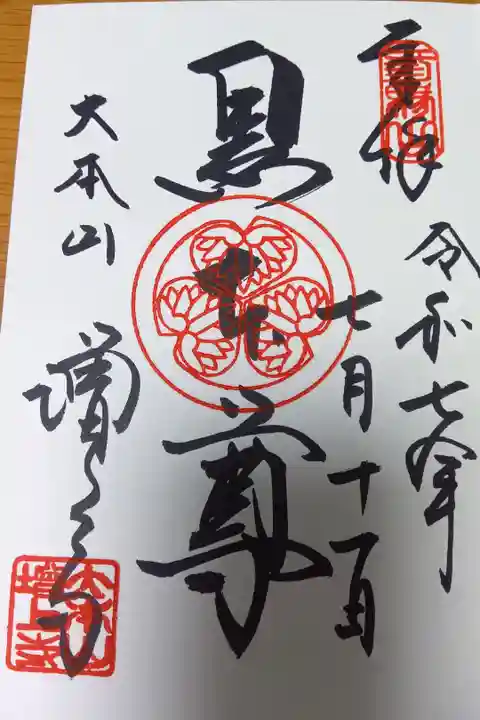 奉拝
令和七年
七月十一日
黒本尊
大本山
増上寺